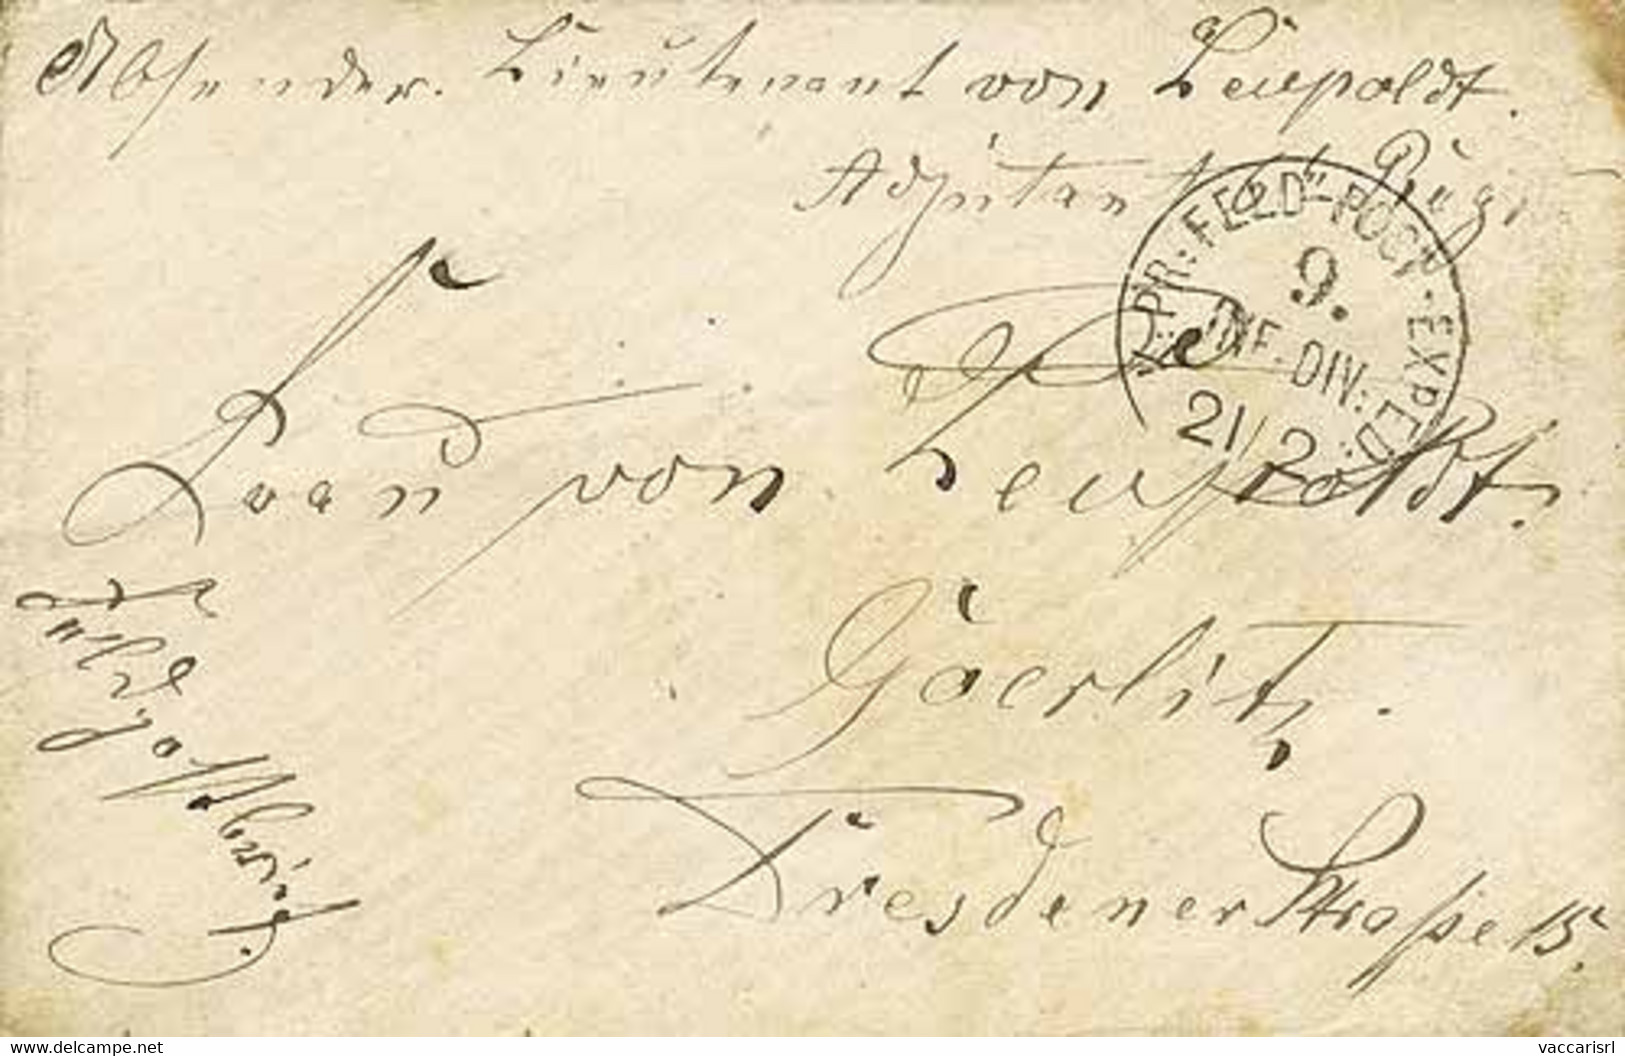 Absender. Lieutenant von Leupoldt.
Adjutant
K: PR: FELD-POST-EXPED:
9.
INF. DIV:
21/2
Frau von Leupoldt.
Goerlitz.
Dresdener Strasse 15.
delcampe.net
vaccarisrl